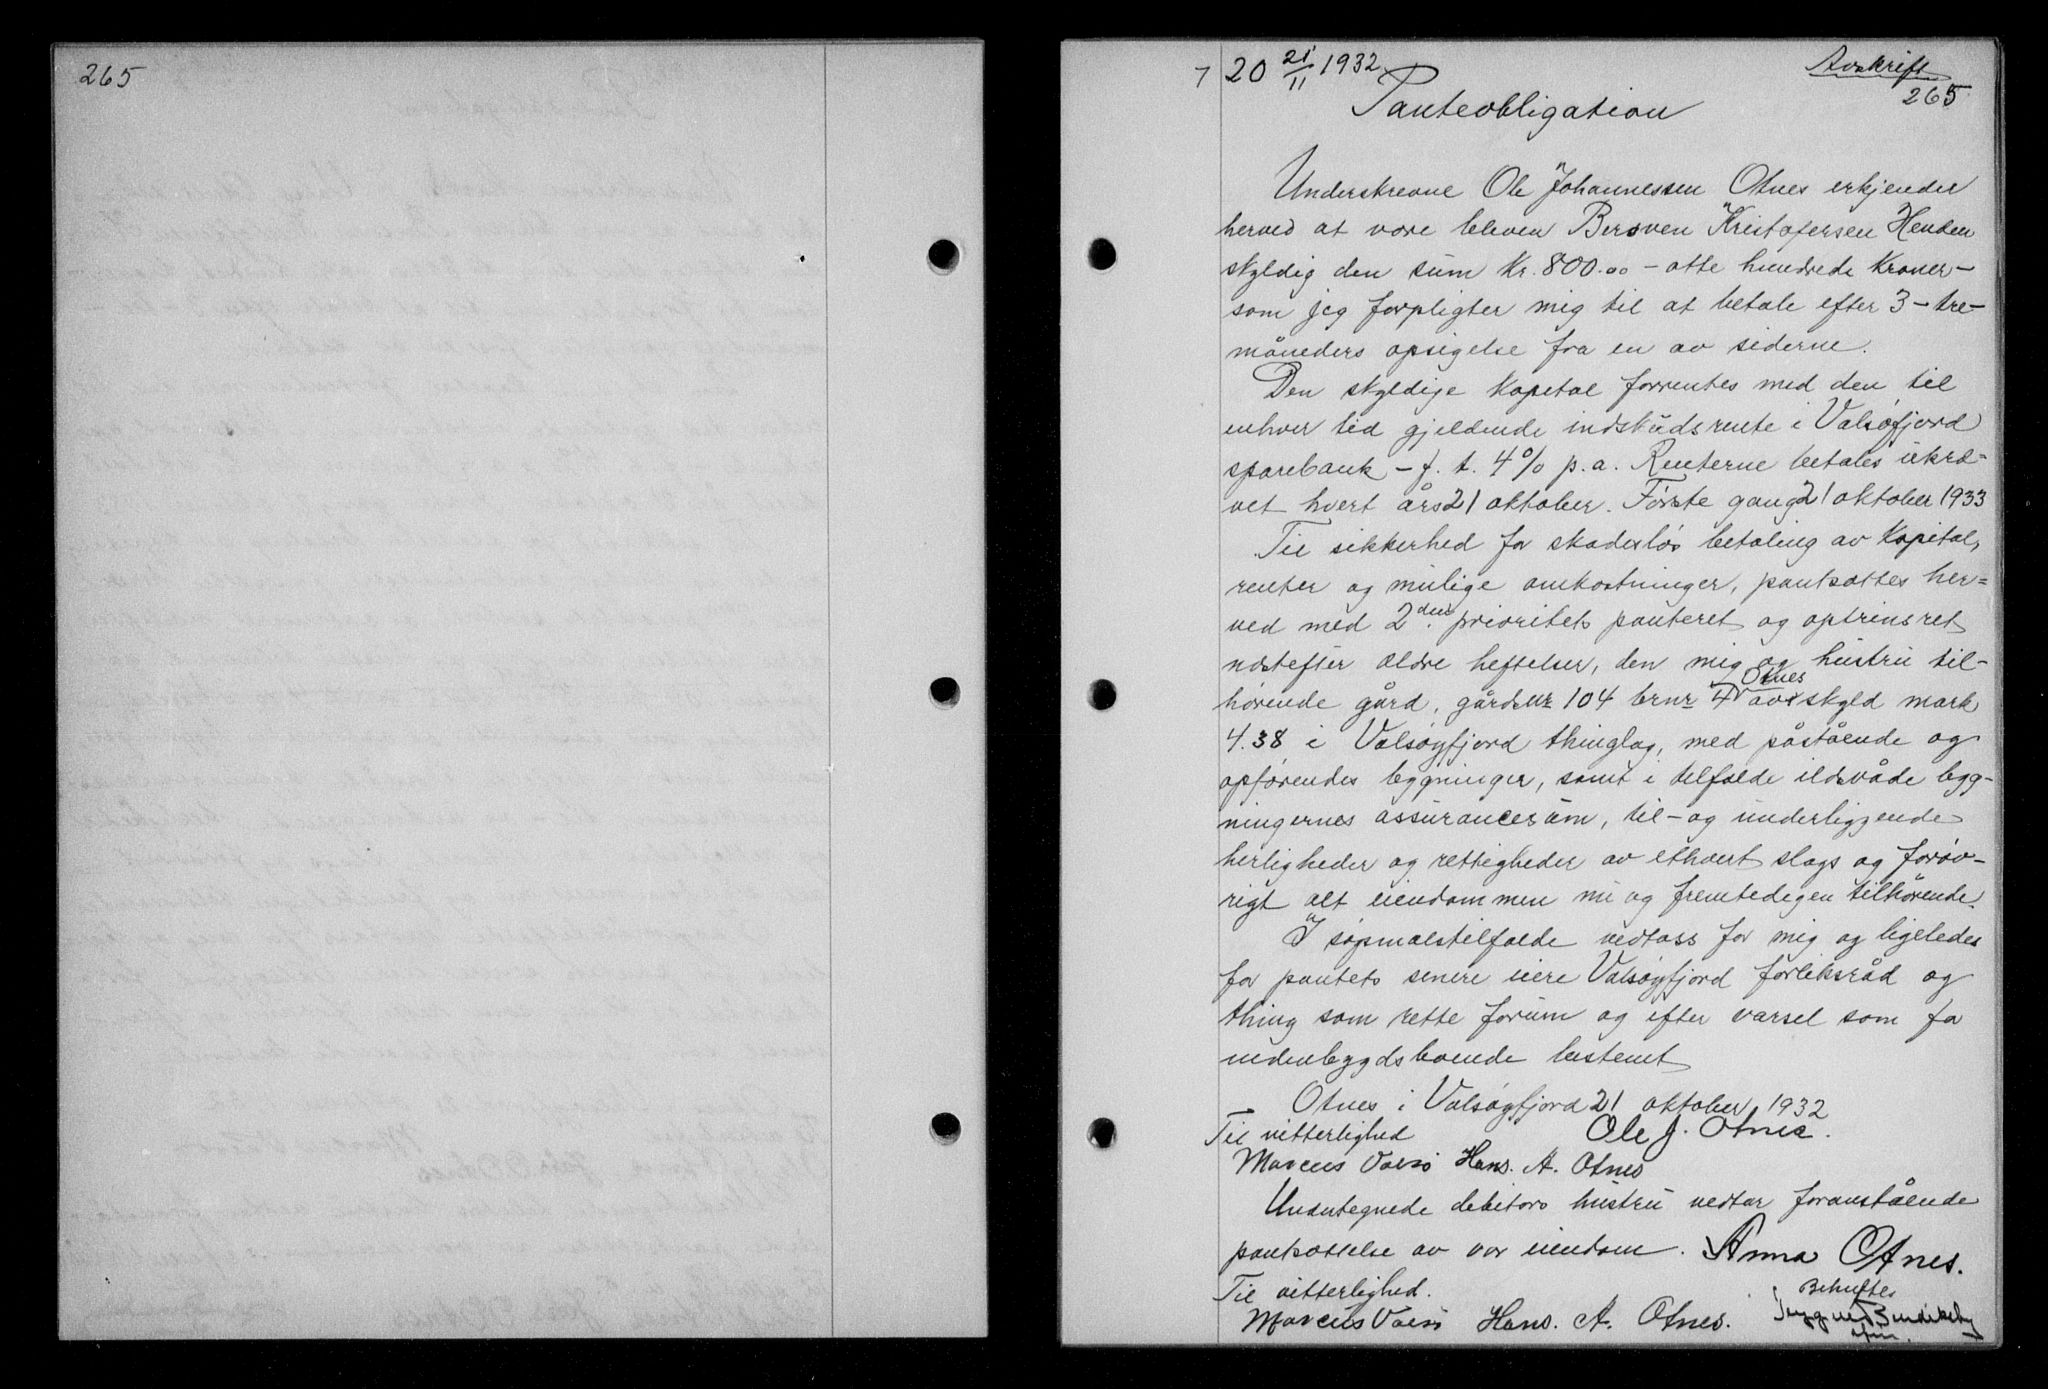 265
7 20 21/11 1932
Avskrift
265
Panteobligation
Underskrevne Ole Johannessen Otnes erkjender
herved at være bleven Bersven Kristofersen Henden
skyldig den sum Kr. 800.00 – otte hundrede Kroner –
som jeg forpligter mig til at betale efter 3 – tre –
måneders opsigelse fra en av siderne.
Den skyldige Kapital forrentes med den til
enhver tid gjeldende indskudsrente i Valsøfjord
sparebank – f. t. 4% p.a. Renterne betales ukræ-
vet hvert års 21 oktober. Første gang 21 oktober 1933
Til sikkerhed for skadesløs betaling av Kapital,
renter og mulige omkostninger, pantsættes her=
ved med 2den prioritets panteret og optrinsret
næstefter ældre heftelser, den mig og hustru til-
Otnes
hørende gård, gårdsnr 104 brnr 4 av skyld mark
4.38 i Valsøyfjord thinglag, med påstående og
opførendes bygninger, samt i tilfælde ildsvåde byg-
ningernes assurancesum, til- og underliggende
herligheder og rettigheder av ethvert slags og forøv-
rigt alt eiendommen nu og fremtedigen tilhørende.
I søpmaalstilfælde vedtass for mig og ligeledes
for pantets senere eiere Valsøyfjord forliksråd og
thing som rette forum og efter varsel som for
indenbygdsboende bestemt
Otnes i Valsøyfjord 21 oktober 1932
Til vitterlighed Ole J. Otnes.
Marcus Valsø Hans. A. Otnes
Undertegnede debitors hustru vedtar foranstående
pantsættelse av vor eiendom. Anna Otnes.
Til vitterlighed. Bekreftes
Marcus Valsø Hans. A. Otnes.